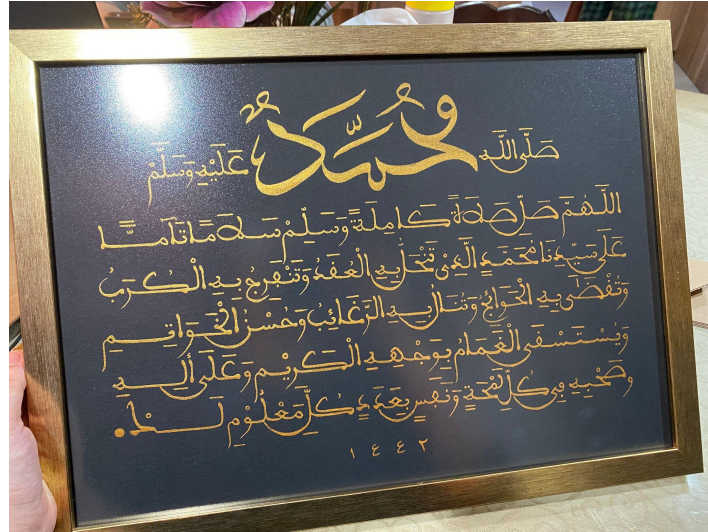 مُحَمَّدٌ
صَلَّى اللَّه عَلَيْهِ وَسَلَّمْ
اللَّهُمَّ صَلِّ صَلَاةً كَامِلَةً وَسَلِّمْ سَلَامًا تَآمًّا
عَلَى سَيِّدِنَا مُحَمَّدٍ الَّذِىْ تَنْحَلُّ بِهِ الْعُقَدُ وَتَنْفَرِجُ بِهِ الْكُرَبُ
وَتُقْضَى بِهِ الْحَوَائِجُ وَتُنَالُ بِهِ الرَّغَائِبُ وَحُسْنُ الْخَوَاتِمِ
وَيُسْتَسْقَى الْغَمَامُ بِوَجْهِهِ الْكَرِيْمِ وَعَلَى أٰلِهِ
وَصَحْبِهِ فِى كُلِّ لَمْحَةٍ وَنَفَسٍ بِعَدَدِ كُلِّ مَعْلُوْمٍ لَّكَ
١٤٤٢